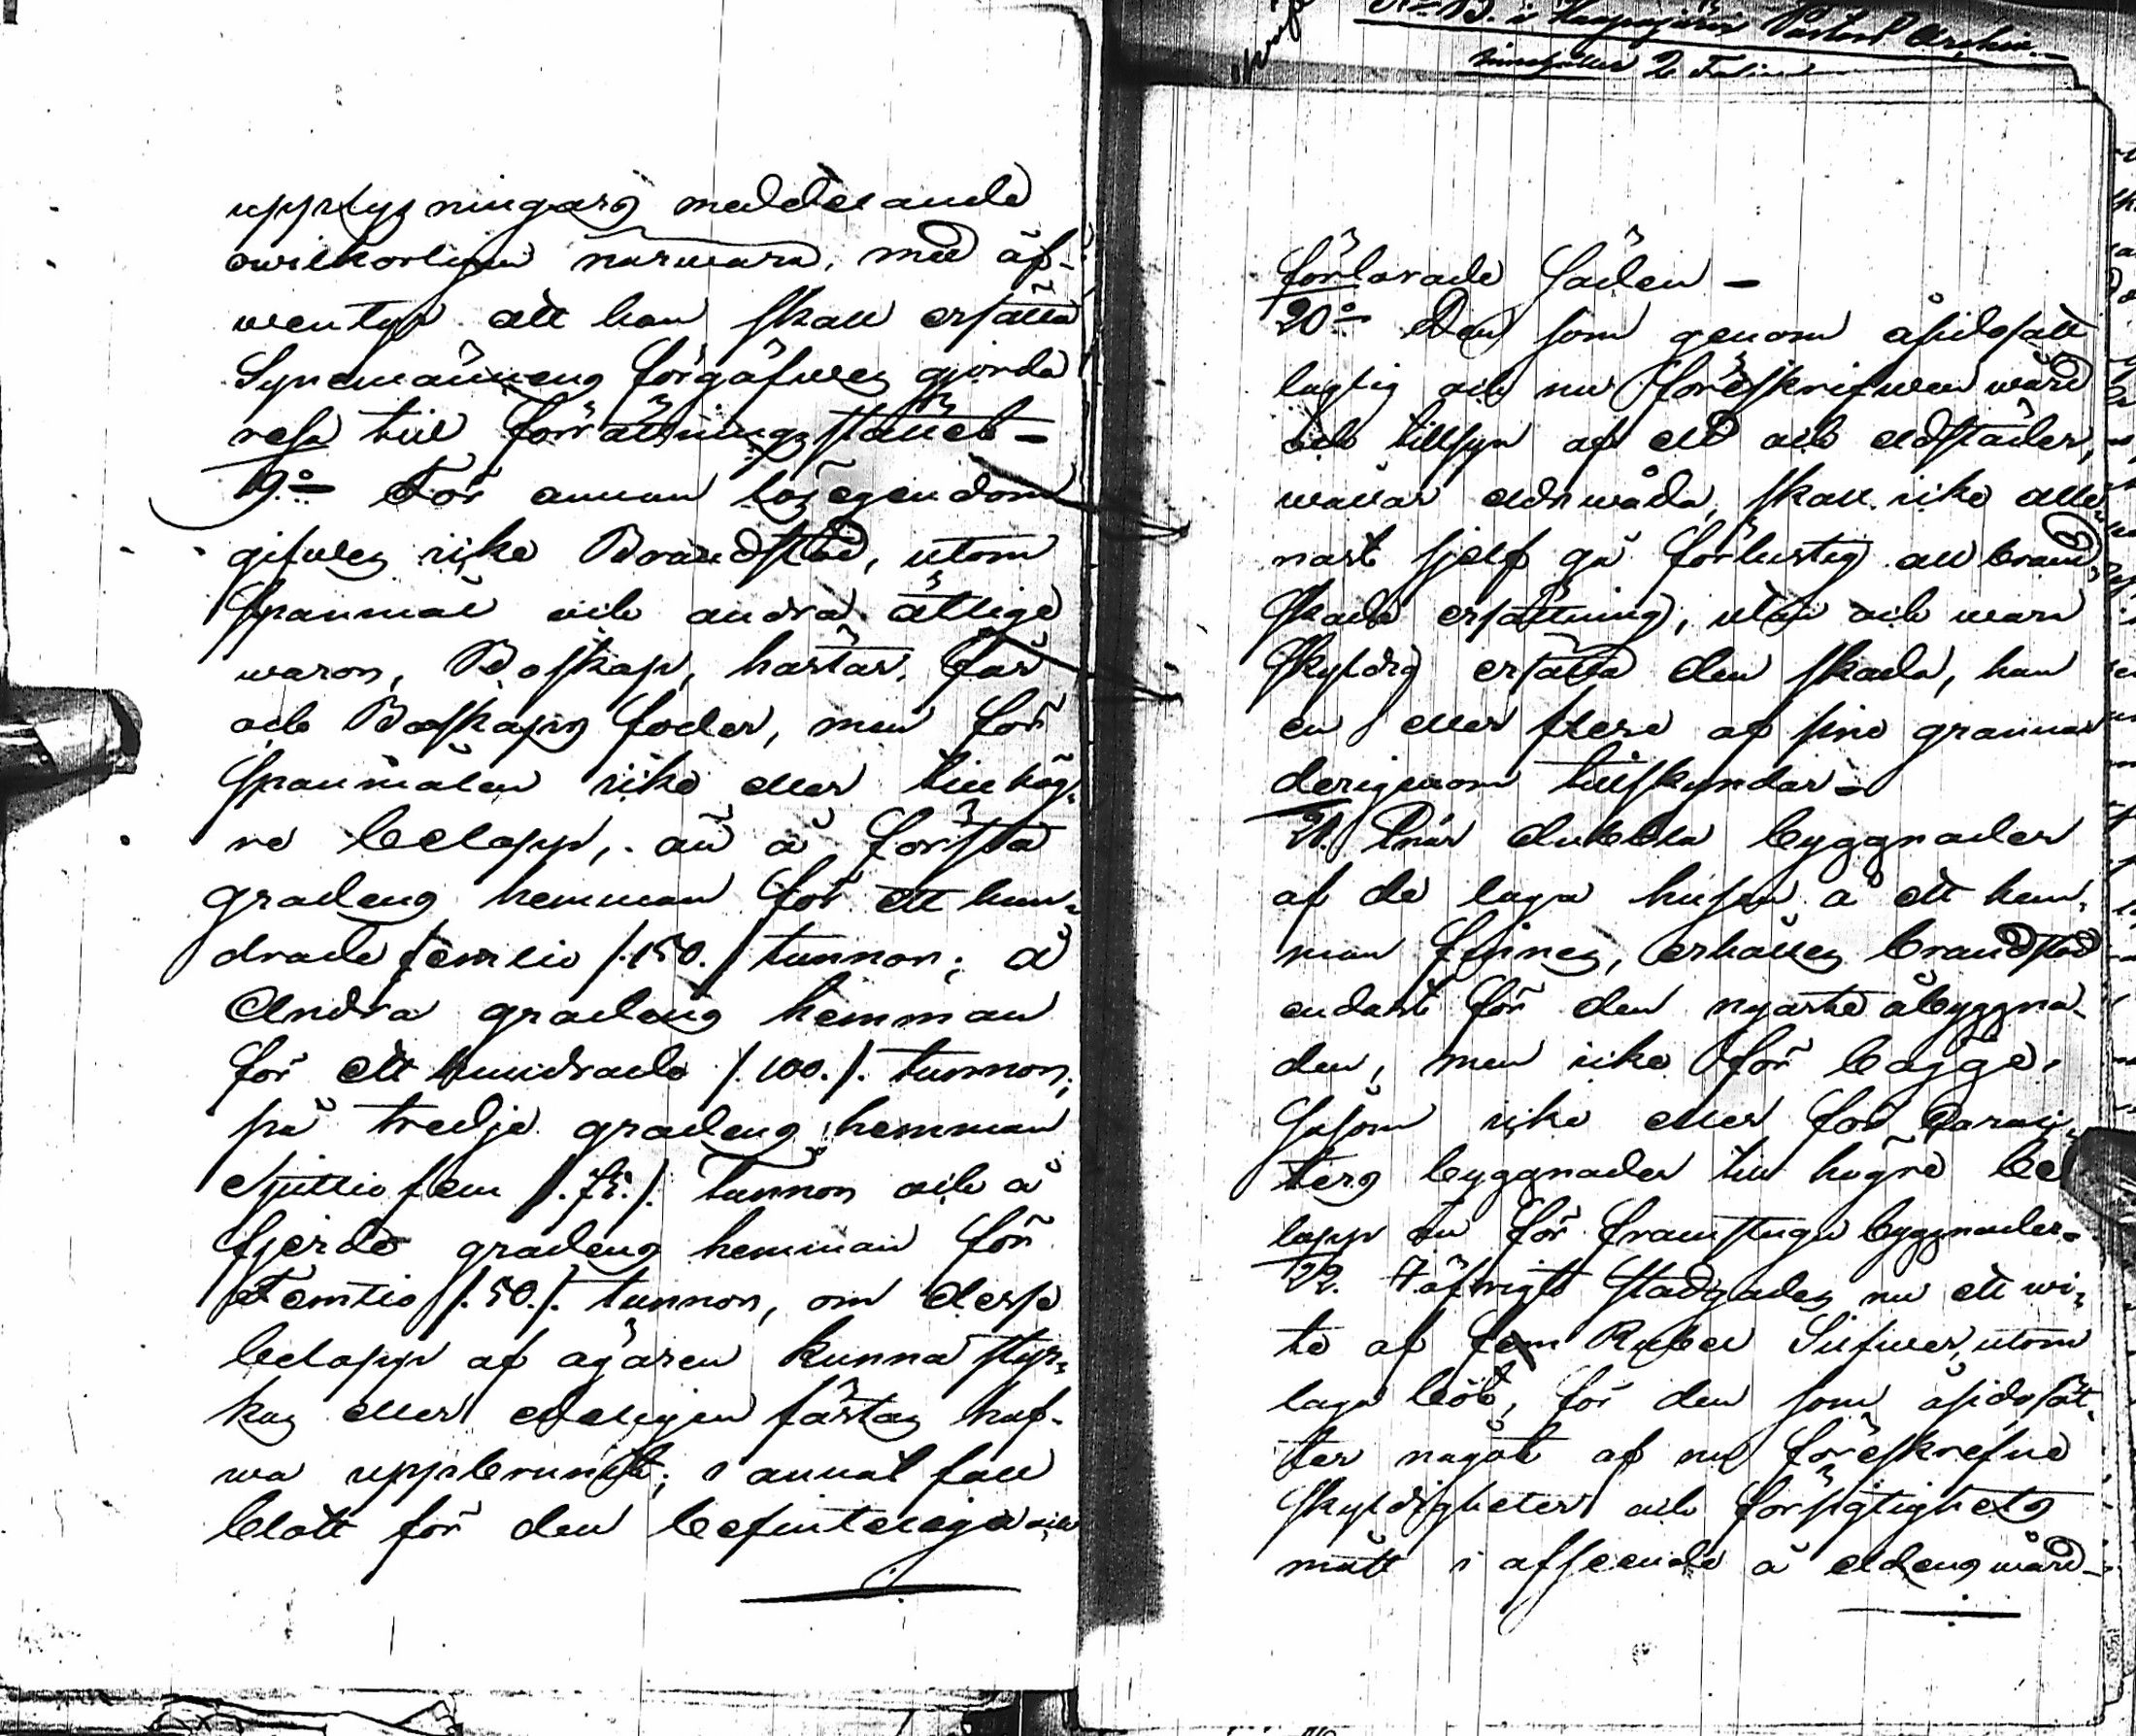 upplysningars meddelande
owilkorligen närwara, med äf-
wentyr att han skall ersätta
Synemännens förgäfwes gjorda
resa till förrättningsstället -
19:o För annan lösegendom
gifwes icke Brandstod, utom
Spanmål och andra ätlige
waror, Boskap, hästar, får
och Boskaps foder, men för
Spanmålen icke eller till hög-
re belopp, än å första
gradens hemman för ett hun-
drade femtio /.150./ tunnor; å
Andra gradens hemman
för ett hundrade /.100./. tunnor;
på tredje gradens hemman
Sjuttio fem /.75./. tunnor och å
fjerde gradens hemman för
Femtio /.50./. tunnor, om desse
belopp af ägaren kunna styr-
kas eller eljest haf-
wa uppbrunnit; i annat fall
blott för den befinteliga och
N:o B. i Pastors Archiv
innehåller 2 Folier
förlorade Säden -
20:o Den som genom åsidosätt
laglig och nu föreskrifwen wård
och tillsyn af eld och eldstäder,
wållar eldswåda, skall icke alle-
nast sjelf gå förlustig all brand-
skade ersättning, utan och wara
Skyldig ersätta den skada, han
en eller flere af sine grannar
derigenom tillskyndar -
21. När dubbla byggnader
af de laga husen å ett hem-
man finnes, erhålles brandstod
endast för den nyaste åbyggna-
den, men icke för bägge,
Såsom icke eller för
byggnader till högre be
lopp än för framstugu byggnader.
22. I öfrigt Stadgades nu ett wi-
te af fem Rubel Silfwer, utom
laga bot, för den som åsidosät-
ter något af nu föreskrefne
Skyldigheter och försigtighets
mått i afseende å eldens wård -